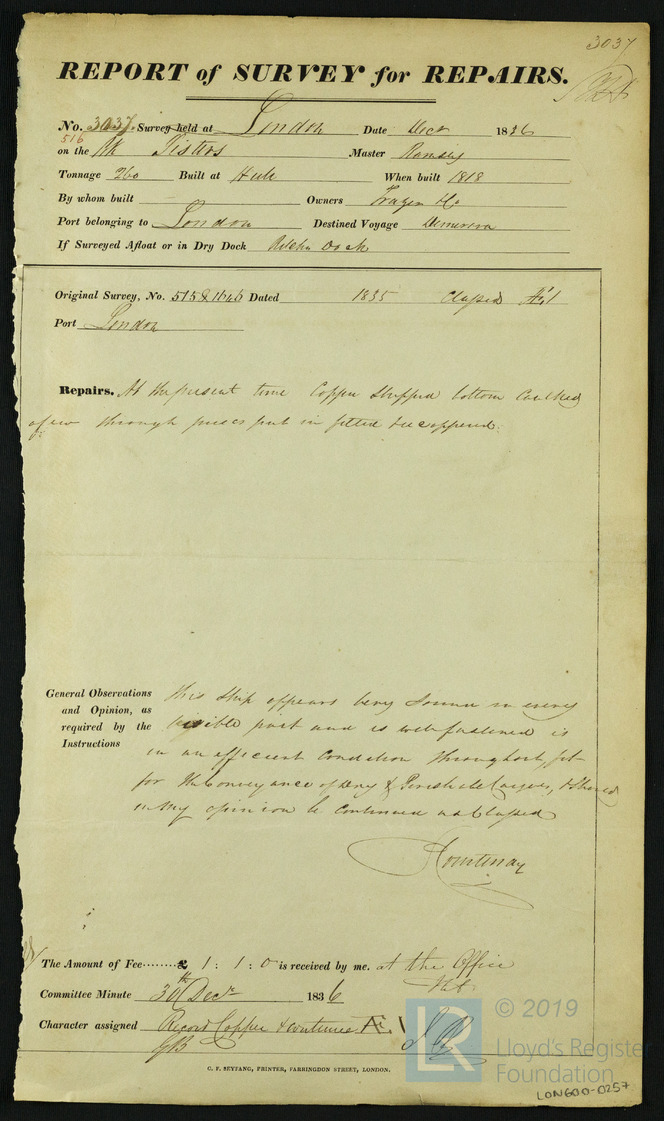 3037
REPORT of SURVEY for REPAIRS.
No. 3037. Survey held at London Date Decr 1836
516
on the Sisters Master Ramsey
Tonnage 260 Built at Hull When built 1818
By whom built Owners Frazer & Co
Port belonging to London Destined Voyage Demerara
If Surveyed Afloat or in Dry Dock Dock
Original Survey, No. 515 & 1646 Dated 1835 Classed Æ1
Port London
Repairs. At the present time Copper stripped bottom Caulked
a few through pieces put in fitted & recoppered.
General Observations and Opinion, as required by the Instructions
This Ship appears very Sound in every
visible part and is well fastened is
in an efficient Condition throughout, fit
for the Conveyance of Dry & Perishable Cargoes, & should
in my opinion be Continued as Classed
Courtenay
The Amount of Fee ........ £ 1 : 1 : 0 is received by me. at the Office
Committee Minute 30th Decr 1836
Character assigned Record Copper & continue Æ 1
GB
C. F. SEYFANG, PRINTER, FARRINGDON STREET, LONDON.
LR
© 2019
Lloyd's Register
Foundation
LON600-0257